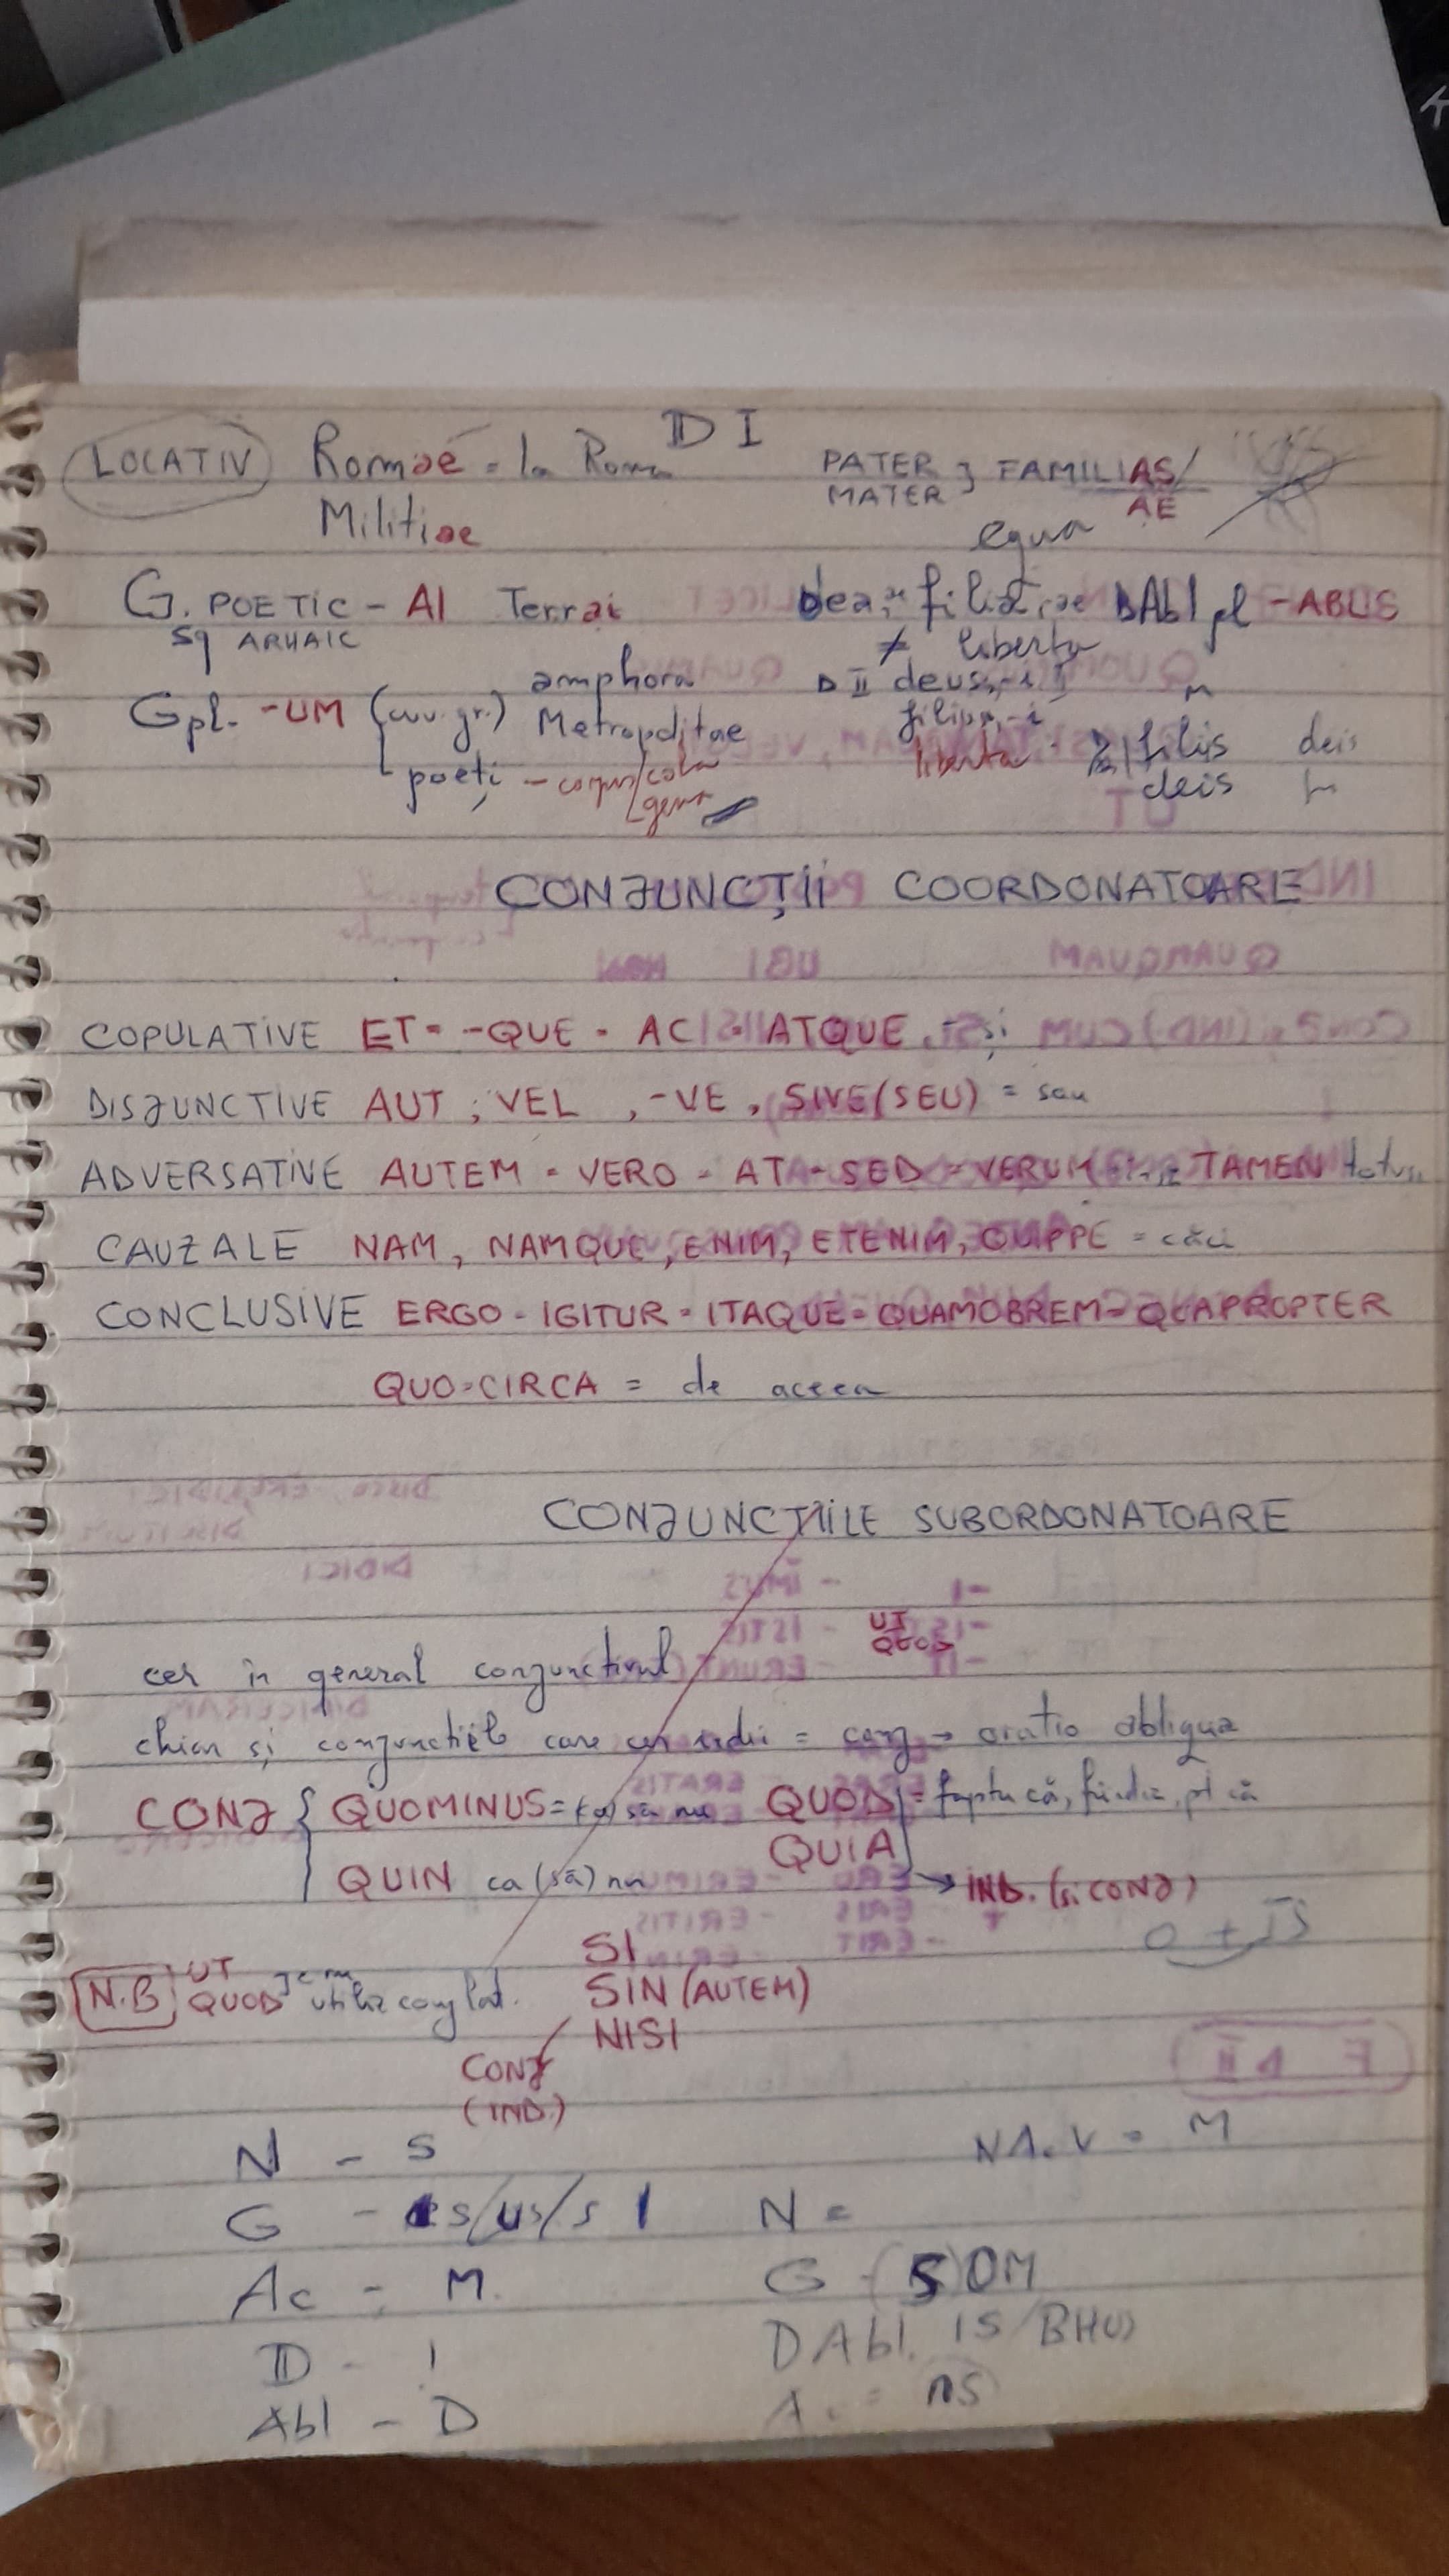 D I
LOCATIV Romae = la Roma
PATER } FAMILIAS/
MATER AE
Militiae
equa
G. POETIC - AI Terrai
dea, filia, ae DAbl pl -ABUS
ȘI ARHAIC
≠ liberta
Gpl. -UM (cuv. gr.) amphora
Metropolitae
D II deus, -i
liberta
filiis deis
deis
poeți - cola
gena
CONJUNCȚII COORDONATOARE
COPULATIVE ET = -QUE = AC = ATQUE = și
DISJUNCTIVE AUT ; VEL , -VE , SIVE (SEU) = sau
ADVERSATIVE AUTEM = VERO = AT = SED = VERUM TAMEN totuși
CAUZALE NAM, NAMQUE, ENIM, ETENIM, QUIPPE = căci
CONCLUSIVE ERGO = IGITUR = ITAQUE = QUAMOBREM = QUAPROPTER
QUO-CIRCA = de aceea
CONJUNCȚIILE SUBORDONATOARE
UT
QUOD
cer în general conjunctivul
chiar și conjuncțiile care cer = conj → oratio obliqua
CONJ { QUOMINUS = (ca) să nu QUOD = faptu că, fiindcă, pt că
QUIA
QUIN ca (să) nu → IND. (și CONJ)
O + IS
SI
N.B UT
QUOD
SIN (AUTEM)
NISI
CONJ
(IND.)
N - S
NA.V = M
G - es/us/s I N =
Ac - M. G - (S)OM
D - I DAbl. IS/BHUS
Abl - D A. = ns